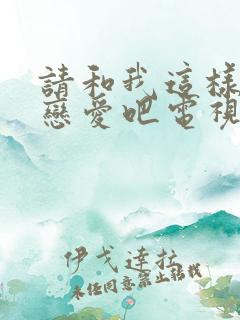 請和我這樣
戀愛吧電視
伊戈達拉
未经同意禁止转载